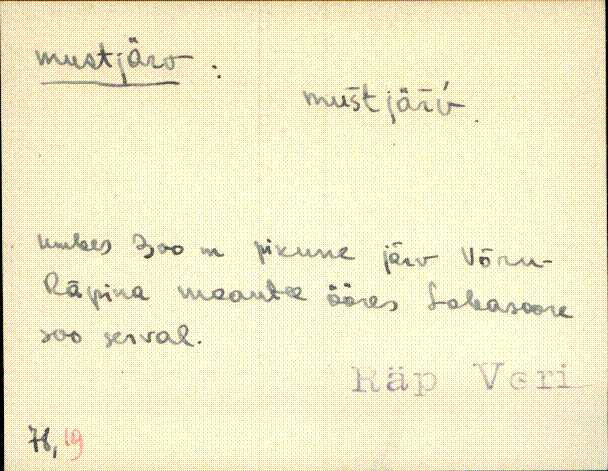 mustjärv :
muštjäŕv́.
umbes 300 m pikune järv Võru-
Räpina maantee ääres
soo serval.
Räp Veri
78, 19